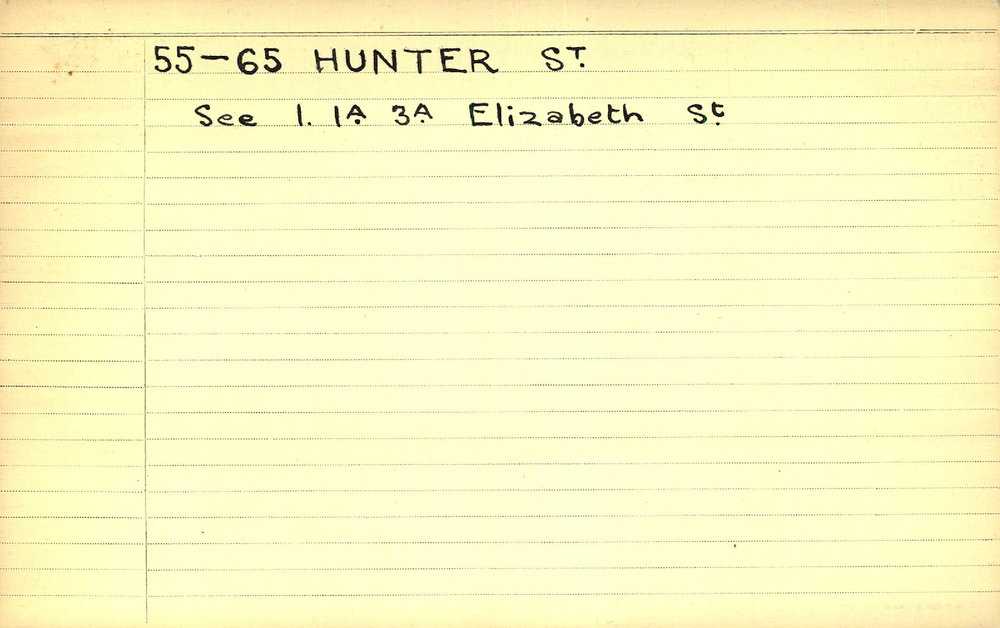 55-65 HUNTER ST.
See 1. 1A. 3A. Elizabeth St.